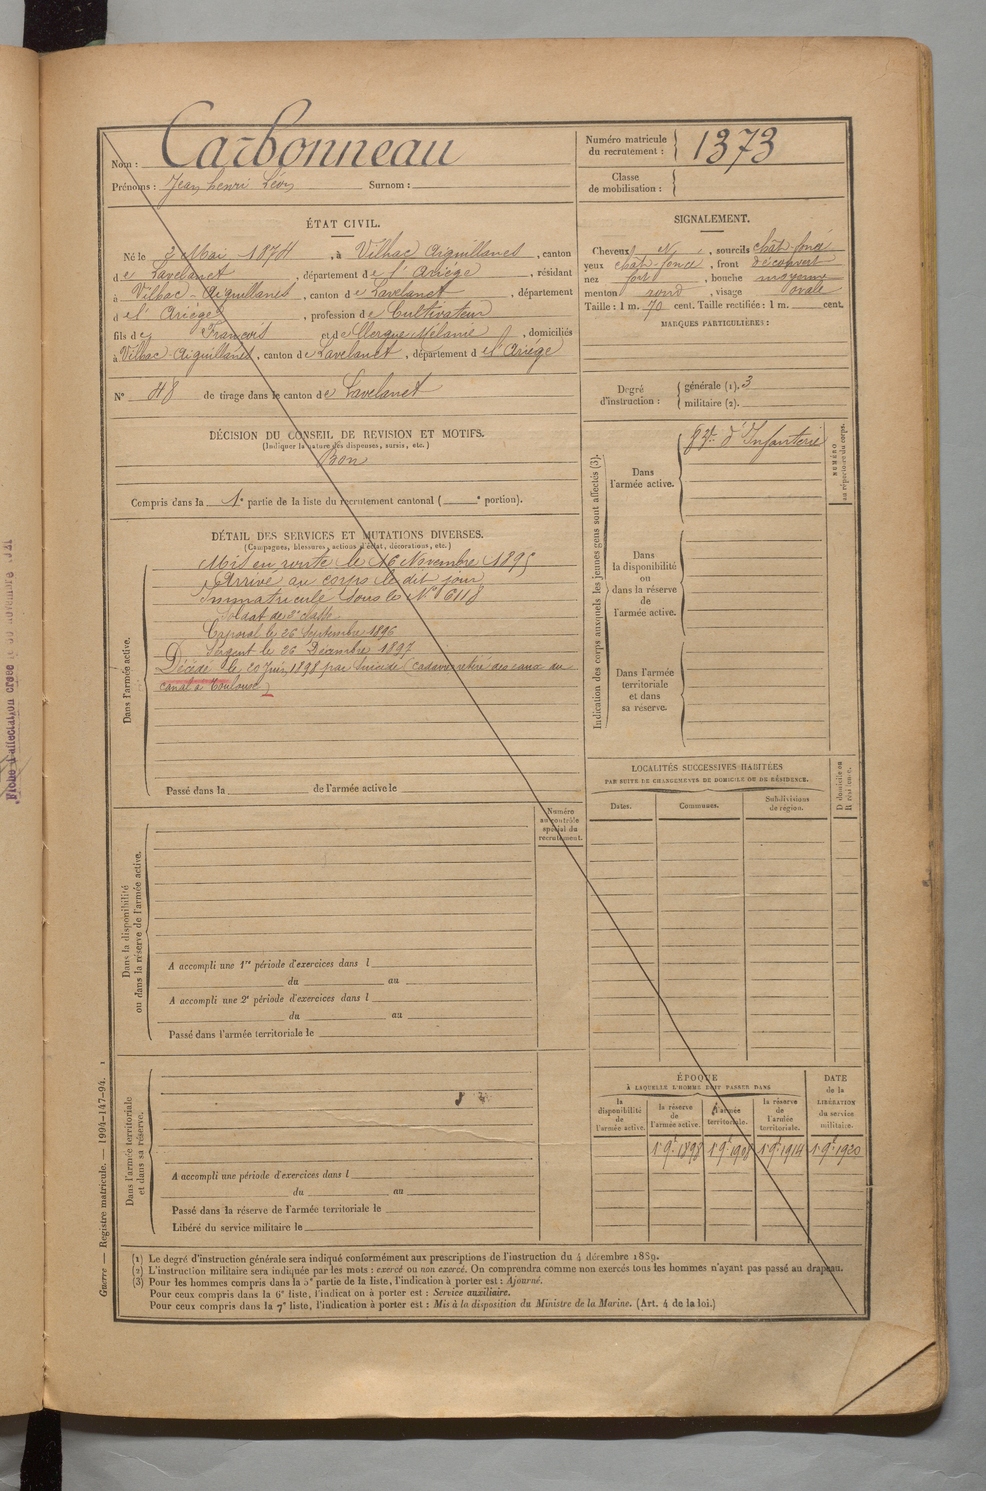 Nom : Carbonneau
Prénoms : Jean henri Léon Surnom :
Numéro matricule du recrutement : 1373
Classe de mobilisation :
ÉTAT CIVIL.
Né le 2 Mai 1874, à Vilhac Aiguillanes, canton
de Lavelanet, département de l'Ariége, résidant
à Vilhac-Aiguillanes, canton de Lavelanet, département
d el' Ariége, profession de Cultivateur
fils de François et de Clergue Mélanie, domiciliés
à Vilhac-Aiguillanes, canton de Lavelanet, département d el'Ariége
N° 48 de tirage dans le canton de Lavelanet
DÉCISION DU CONSEIL DE REVISION ET MOTIFS.
(Indiquer la nature des dispenses, sursis, etc.)
Bon
Compris dans la 1e partie de la liste du recrutement cantonal ( e portion).
DÉTAIL DES SERVICES ET MUTATIONS DIVERSES.
(Campagnes, blessures, actions d'éclat, décorations, etc.)
Dans l'armée active.
Mis en route le 16 Novembre 1895
Arrivé au corps le dit jour
Immatriculé sous le N° 6118
Soldat de 2e classe
Caporal le 26 Septembre 1896
Sergent le 26 Décembre 1897
Décédé le 20 Juin 1898 par Suicide (cadavre retiré des eaux du
canal à Toulouse)
Passé dans la de l'armée active le
Numéro au contrôle spécial du recrutement.
Dans la disponibilité ou dans la réserve de l'armée active.
A accompli une 1re période d'exercices dans l
du au
A accompli une 2e période d'exercices dans l
du au
Passé dans l'armée territoriale le
Dans l'armée territoriale et dans sa réserve.
A accompli une période d'exercices dans l
du au
Passé dans la réserve de l'armée territoriale le
Libéré du service militaire le
SIGNALEMENT.
Cheveux N, sourcils chât-foncé
yeux chât-foncé, front découvert
nez fort, bouche moyenne
menton rond, visage ovale
Taille : 1 m. 70 cent. Taille rectifiée : 1 m. cent.
MARQUES PARTICULIÈRES :
Degré d'instruction : générale (1). 3
militaire (2).
Indication des corps auxquels les jeunes gens sont affectés (3).
NUMÉRO au répertoire du corps.
Dans l'armée active. d'Infanterie
Dans la disponibilité ou dans la réserve de l'armée active.
Dans l'armée territoriale et dans sa réserve.
LOCALITÉS SUCCESSIVES HABITÉES
PAR SUITE DE CHANGEMENTS DE DOMICILE OU DE RÉSIDENCE.
Dates. Communes. Subdivisions de région. D domicile ou R résidence.
ÉPOQUE
À LAQUELLE L'HOMME DOIT PASSER DANS
DATE de la LIBÉRATION du service militaire.
la disponibilité de l'armée active. la réserve de l'armée active. l'armée territoriale. la réserve de l'armée territoriale.
1 9bre 1898 1 9bre 1908 1 9bre 1914 1 9bre 1920
(1) Le degré d'instruction générale sera indiqué conformément aux prescriptions de l'instruction du 4 décembre 1889.
(2) L'instruction militaire sera indiquée par les mots : exercé ou non exercé. On comprendra comme non exercés tous les hommes n'ayant pas passé au drapeau.
(3) Pour les hommes compris dans la 5e partie de la liste, l'indication à porter est : Ajourné.
Pour ceux compris dans la 6e liste, l'indication à porter est : Service auxiliaire.
Pour ceux compris dans la 7e liste, l'indication à porter est : Mis à la disposition du Ministre de la Marine. (Art. 4 de la loi.)
Guerre — Registre matricule. — 1994-147-94.